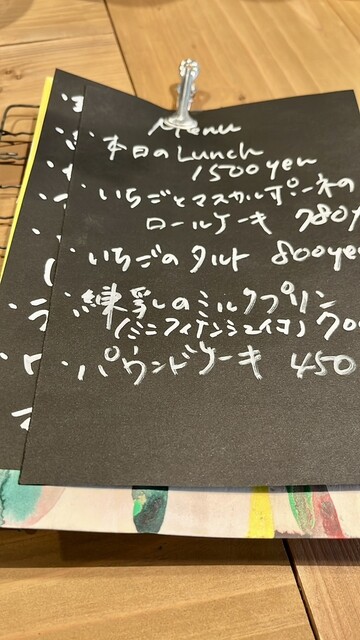 Menu
・本日のLunch
1500yen
・いちごとマスカルポーネの
ロールケーキ 780
・いちごのタルト 800yen
・練乳のミルクプリン
(ミニフィナンシェ付) 700
・パウンドケーキ 450